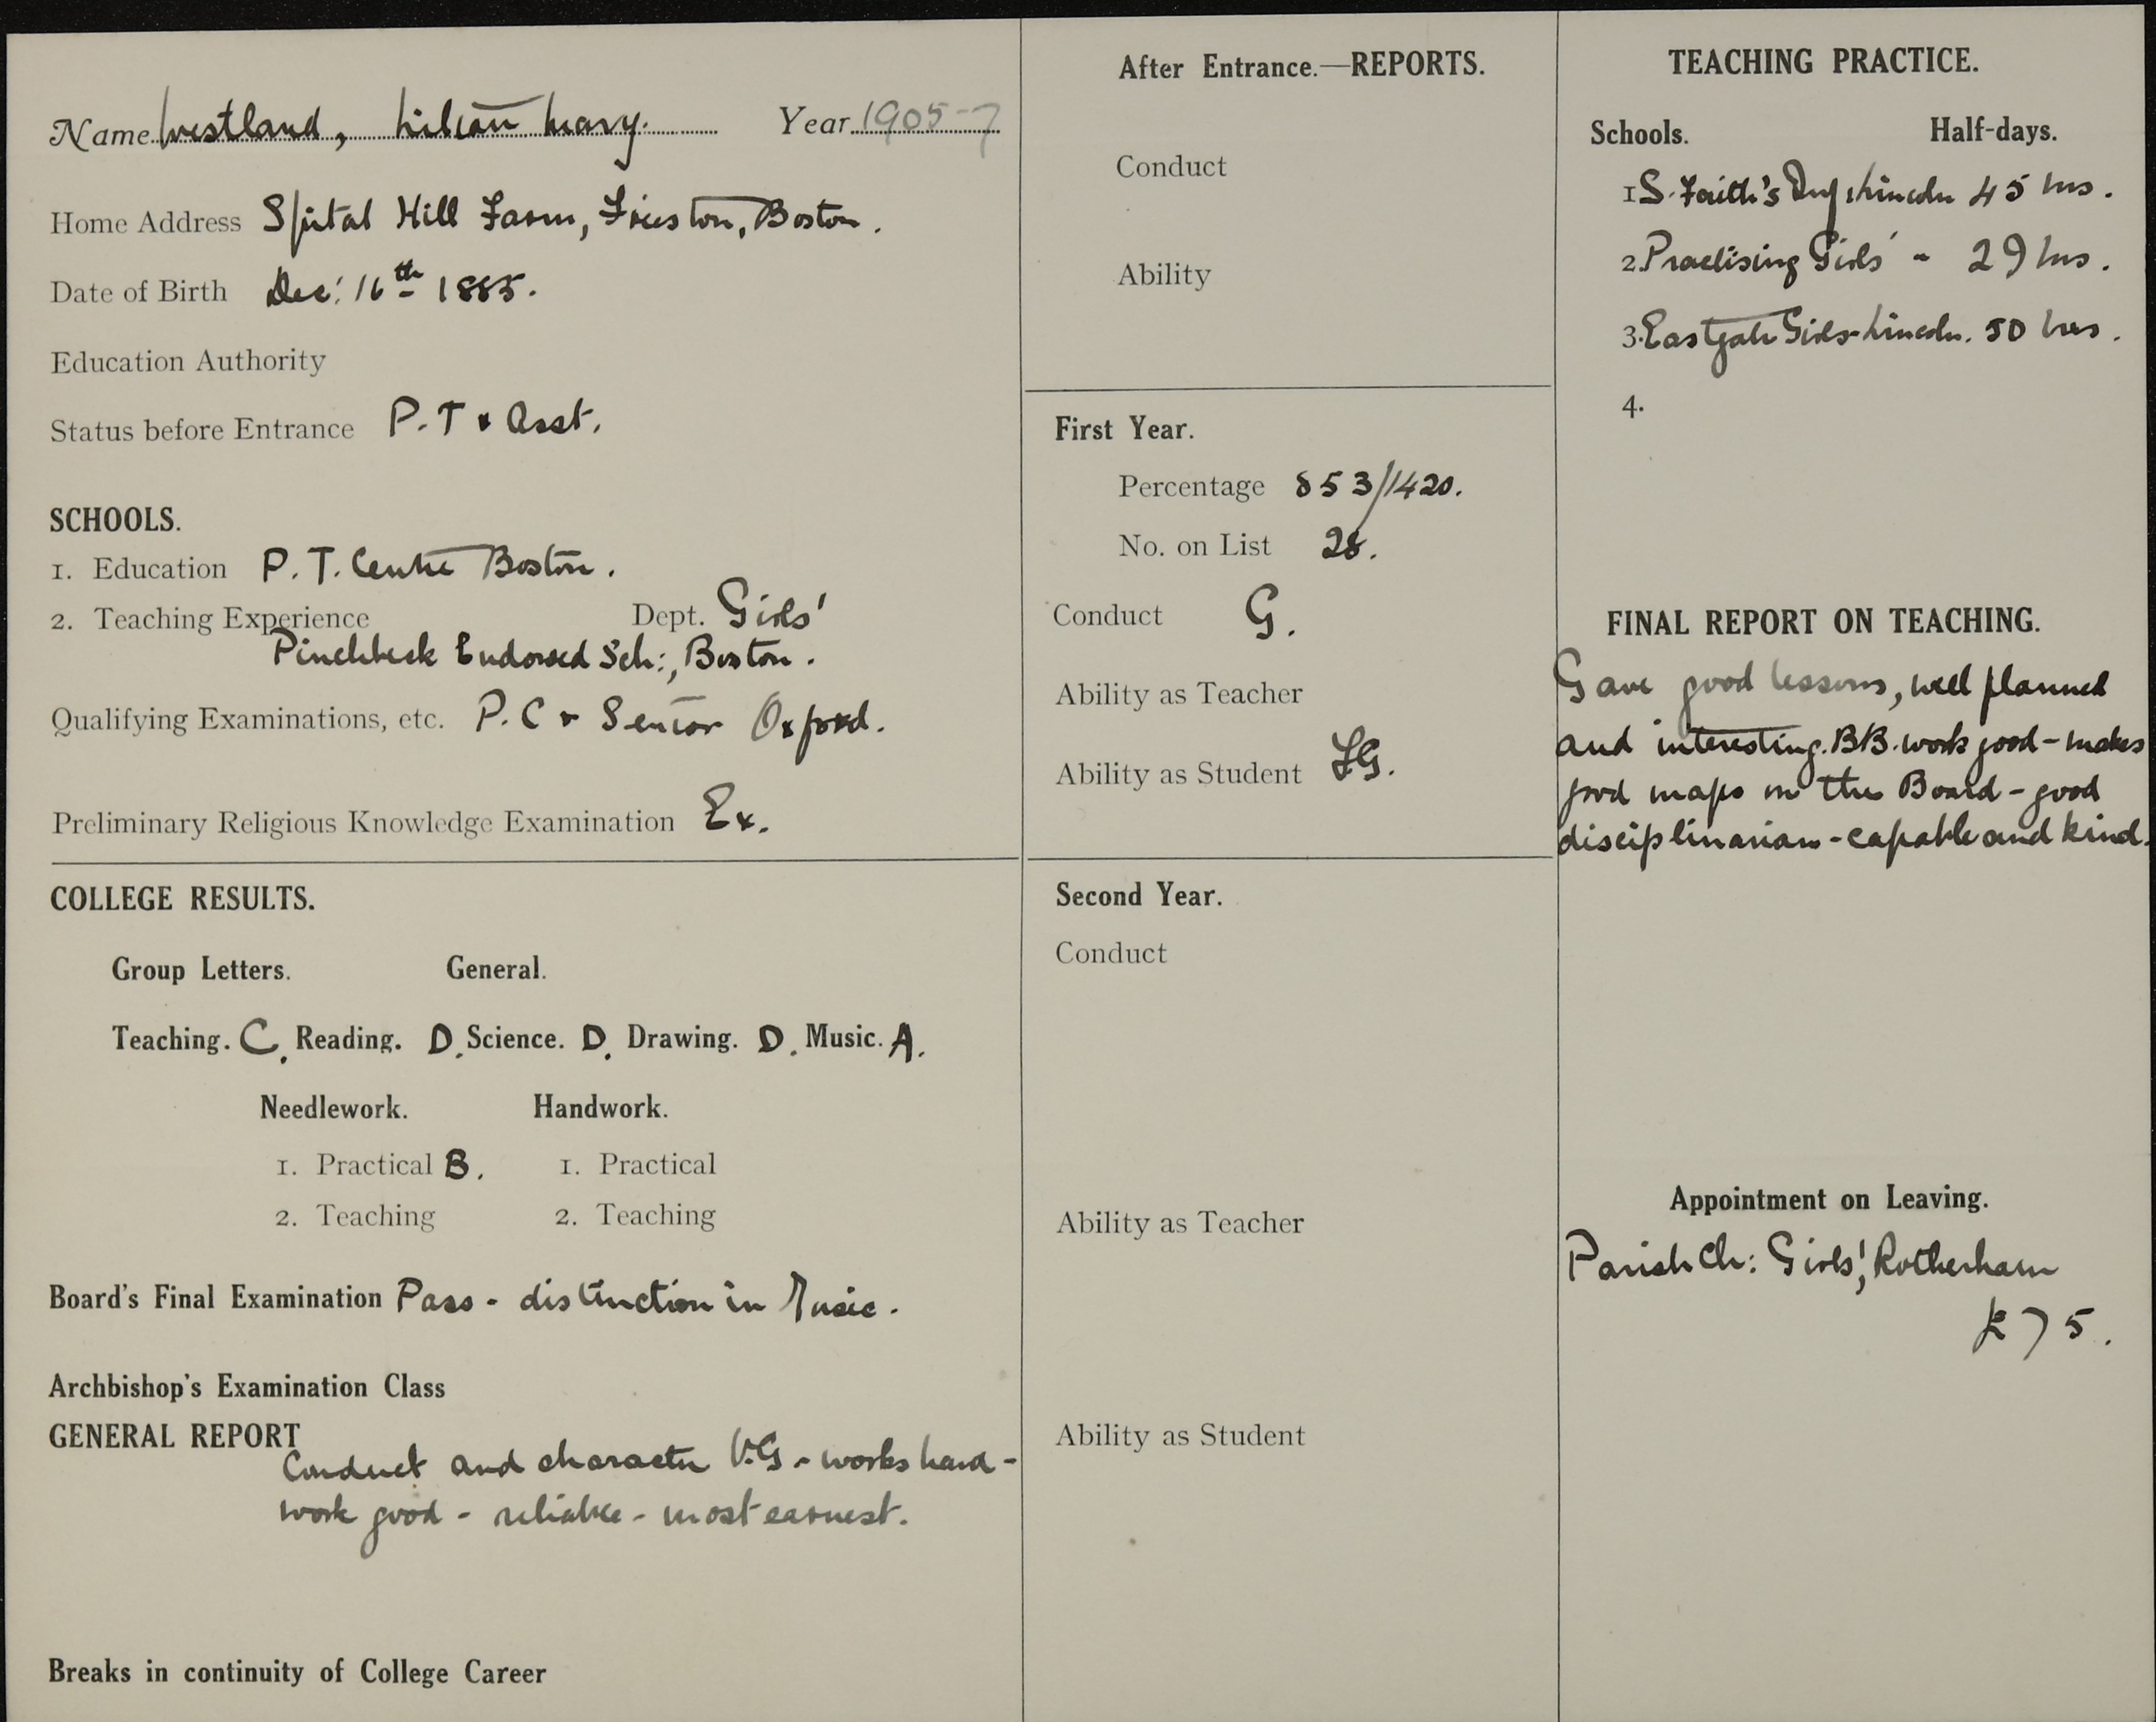 Name Westland, Lilian Mary. Year 1905-7
Home Address Spital Hill Farm, Frieston, Boston.
Date of Birth Dec: 16th 1885.
Education Authority
Status before Entrance P.T & Asst.
SCHOOLS.
1. Education P.T. Centre Boston.
2. Teaching Experience Dept. Girls'
Pinchbeck Endowed Sch:, Boston.
Qualifying Examinations, etc. P.C & Senior Oxford.
Preliminary Religious Knowledge Examination Ex.
COLLEGE RESULTS.
Group Letters. General.
Teaching. C. Reading. D. Science. D. Drawing. D. Music. A.
Needlework. Handwork.
1. Practical B. 1. Practical
2. Teaching 2. Teaching
Board's Final Examination Pass - distinction in Music.
Archbishop's Examination Class
GENERAL REPORT
Conduct and character V.G - works hard -
work good - reliable - most earnest.
Breaks in continuity of College Career
After Entrance.—REPORTS.
Conduct
Ability
First Year.
Percentage 853/1420.
No. on List 28.
Conduct G.
Ability as Teacher
Ability as Student FG.
Second Year.
Conduct
Ability as Teacher
Ability as Student
TEACHING PRACTICE.
Schools. Half-days.
1 S. Faith's Inf, Lincoln 45 hrs.
2. Practising Girls' - 29 hrs.
3. Eastgate Girls - Lincoln. 50 hrs.
4.
FINAL REPORT ON TEACHING.
Gave good lessons, well planned
and interesting. BB. work good - makes
good maps on the Board - good
disciplinarian - capable and kind.
Appointment on Leaving.
Parish Ch: Girls', Rotherham
£75.